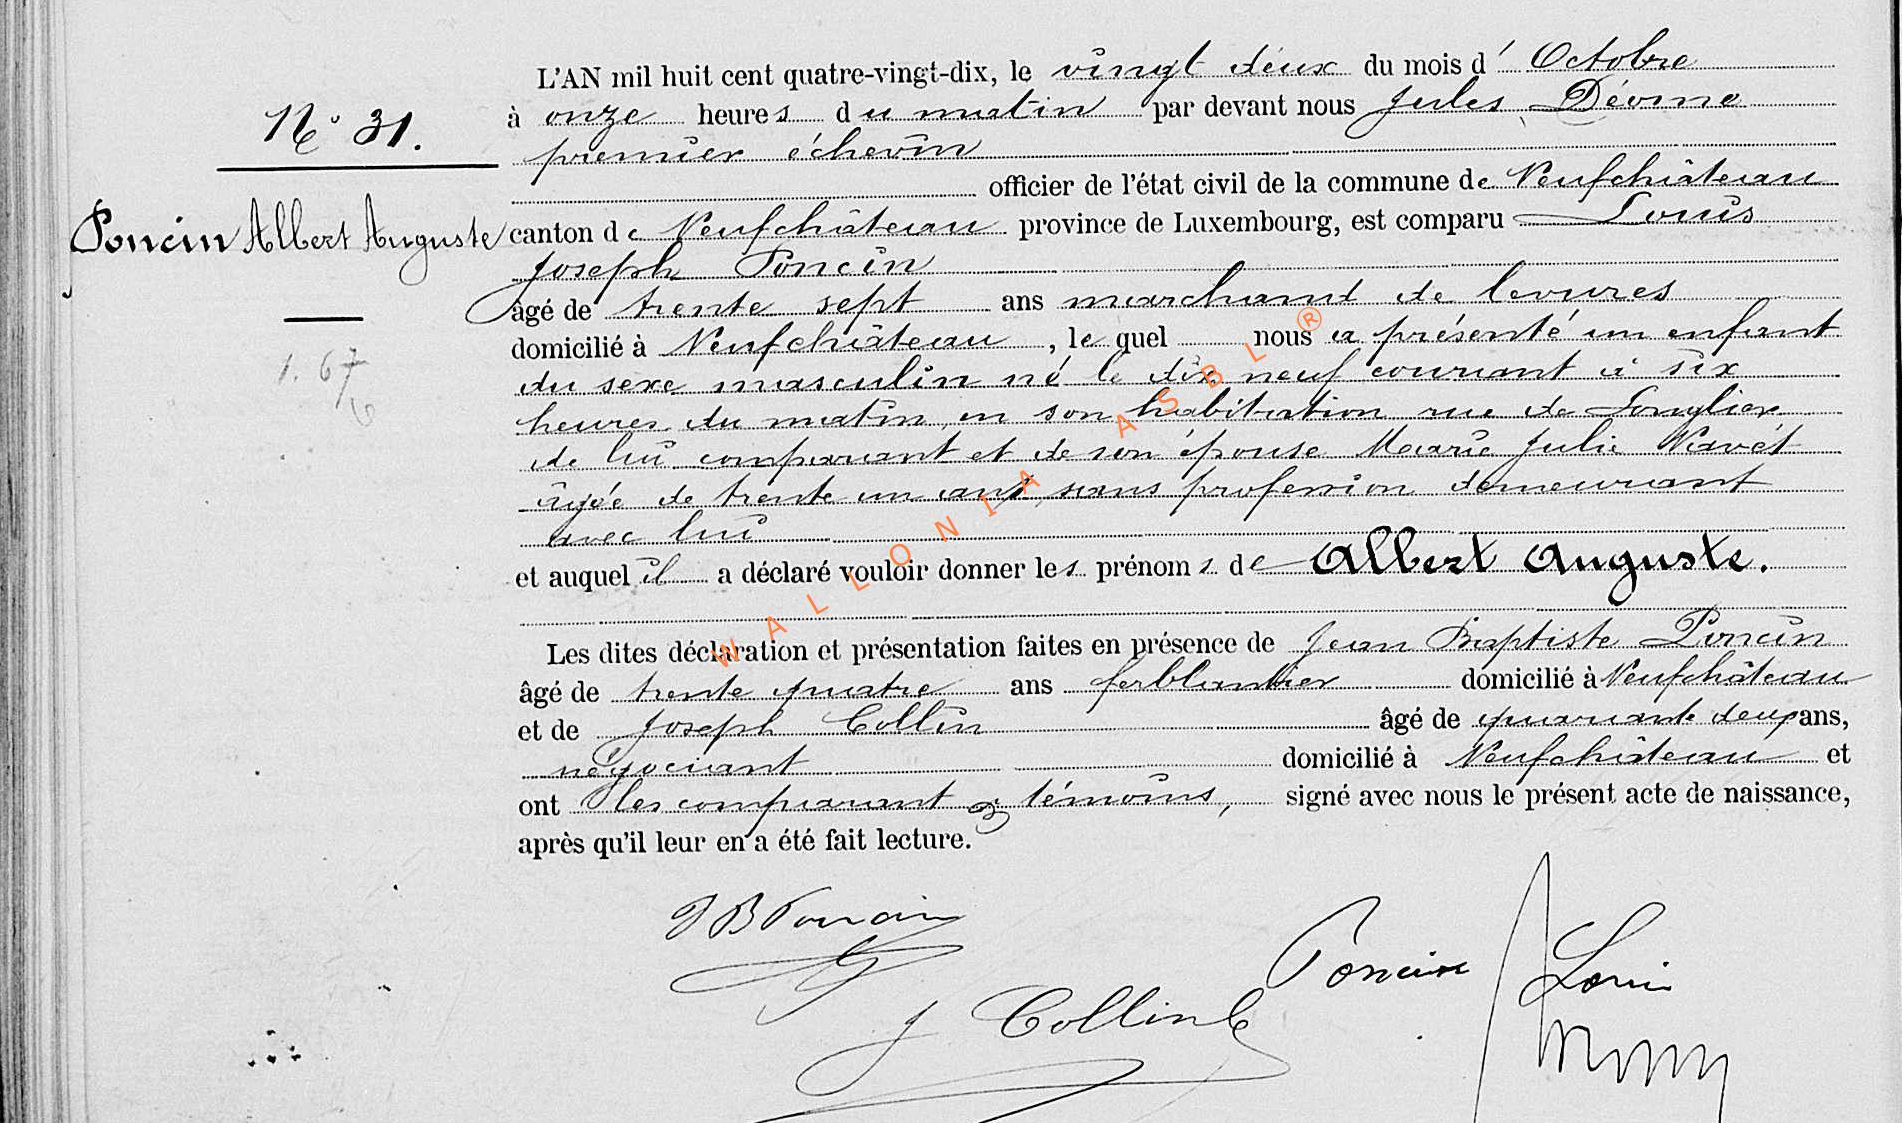 L'AN mil huit cent quatre-vingt-dix, le vingt deux du mois d' Octobre
à onze heures du matin par devant nous Jules
premier échevin
officier de l'état civil de la commune de Neufchâteau
canton de Neufchâteau province de Luxembourg, est comparu Louis
Joseph Poncin
âgé de trente sept ans marchand de levures
domicilié à Neufchâteau, le quel nous a présenté un enfant
du sexe masculin né le dix neuf courant à six
heures du matin, en son habitation rue de Longlier
de lui comparant et de son épouse Marie Julie
âgée de trente un ans, sans profession demeurant
avec lui
et auquel il a déclaré vouloir donner les prénoms de Albert Auguste.
Les dites déclaration et présentation faites en présence de Jean Baptiste Poncin
âgé de trente quatre ans ferblantier domicilié à Neufchâteau
et de Joseph Collin âgé de quarante deux ans,
négociant domicilié à Neufchâteau et
ont les comparant & témoins, signé avec nous le présent acte de naissance,
après qu'il leur en a été fait lecture.
N° 31.
Poncin Albert Auguste
WALLONIA ASBL ®
JB Poncin
Poncin Louis
J Collin